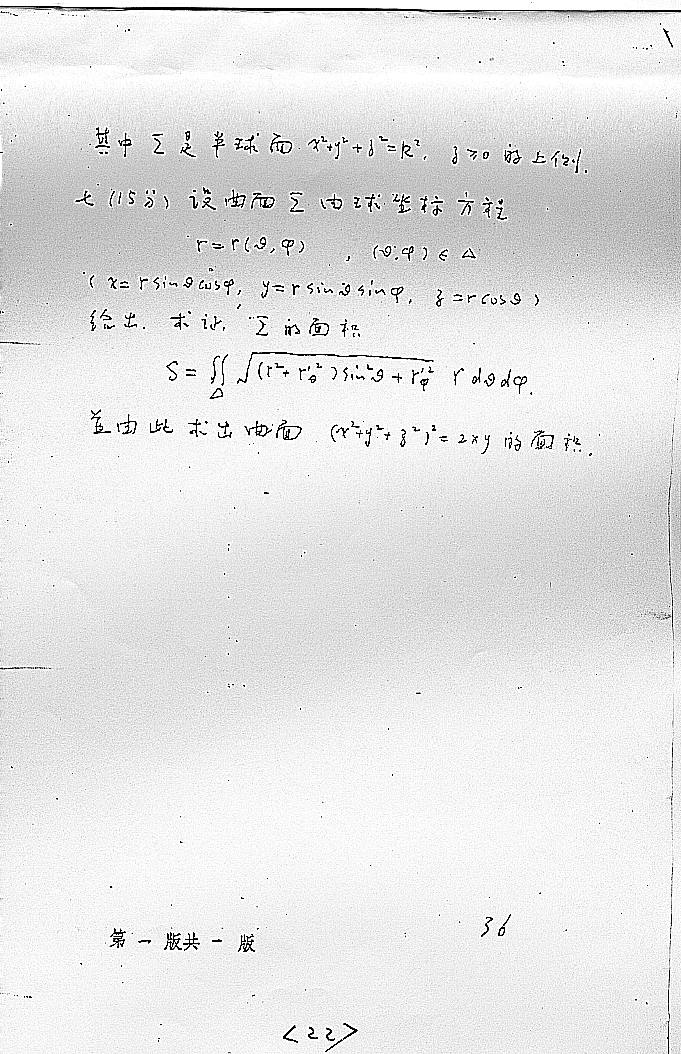 其中Σ是半球面 x²+y²+z²=R², z≥0的上侧.
七(15分) 设曲面Σ由球坐标方程
r=r(θ,φ) , (θ,φ)∈Δ
(x=rsinθcosφ, y=rsinθsinφ, z=rcosθ)
给出. 求证, Σ的面积
S=∬_Δ √((r²+r'_θ²)sin²θ+r'_φ²) r dθdφ.
并由此求出曲面 (x²+y²+z²)²=2xy 的面积.
36
第一版共一版
<22>